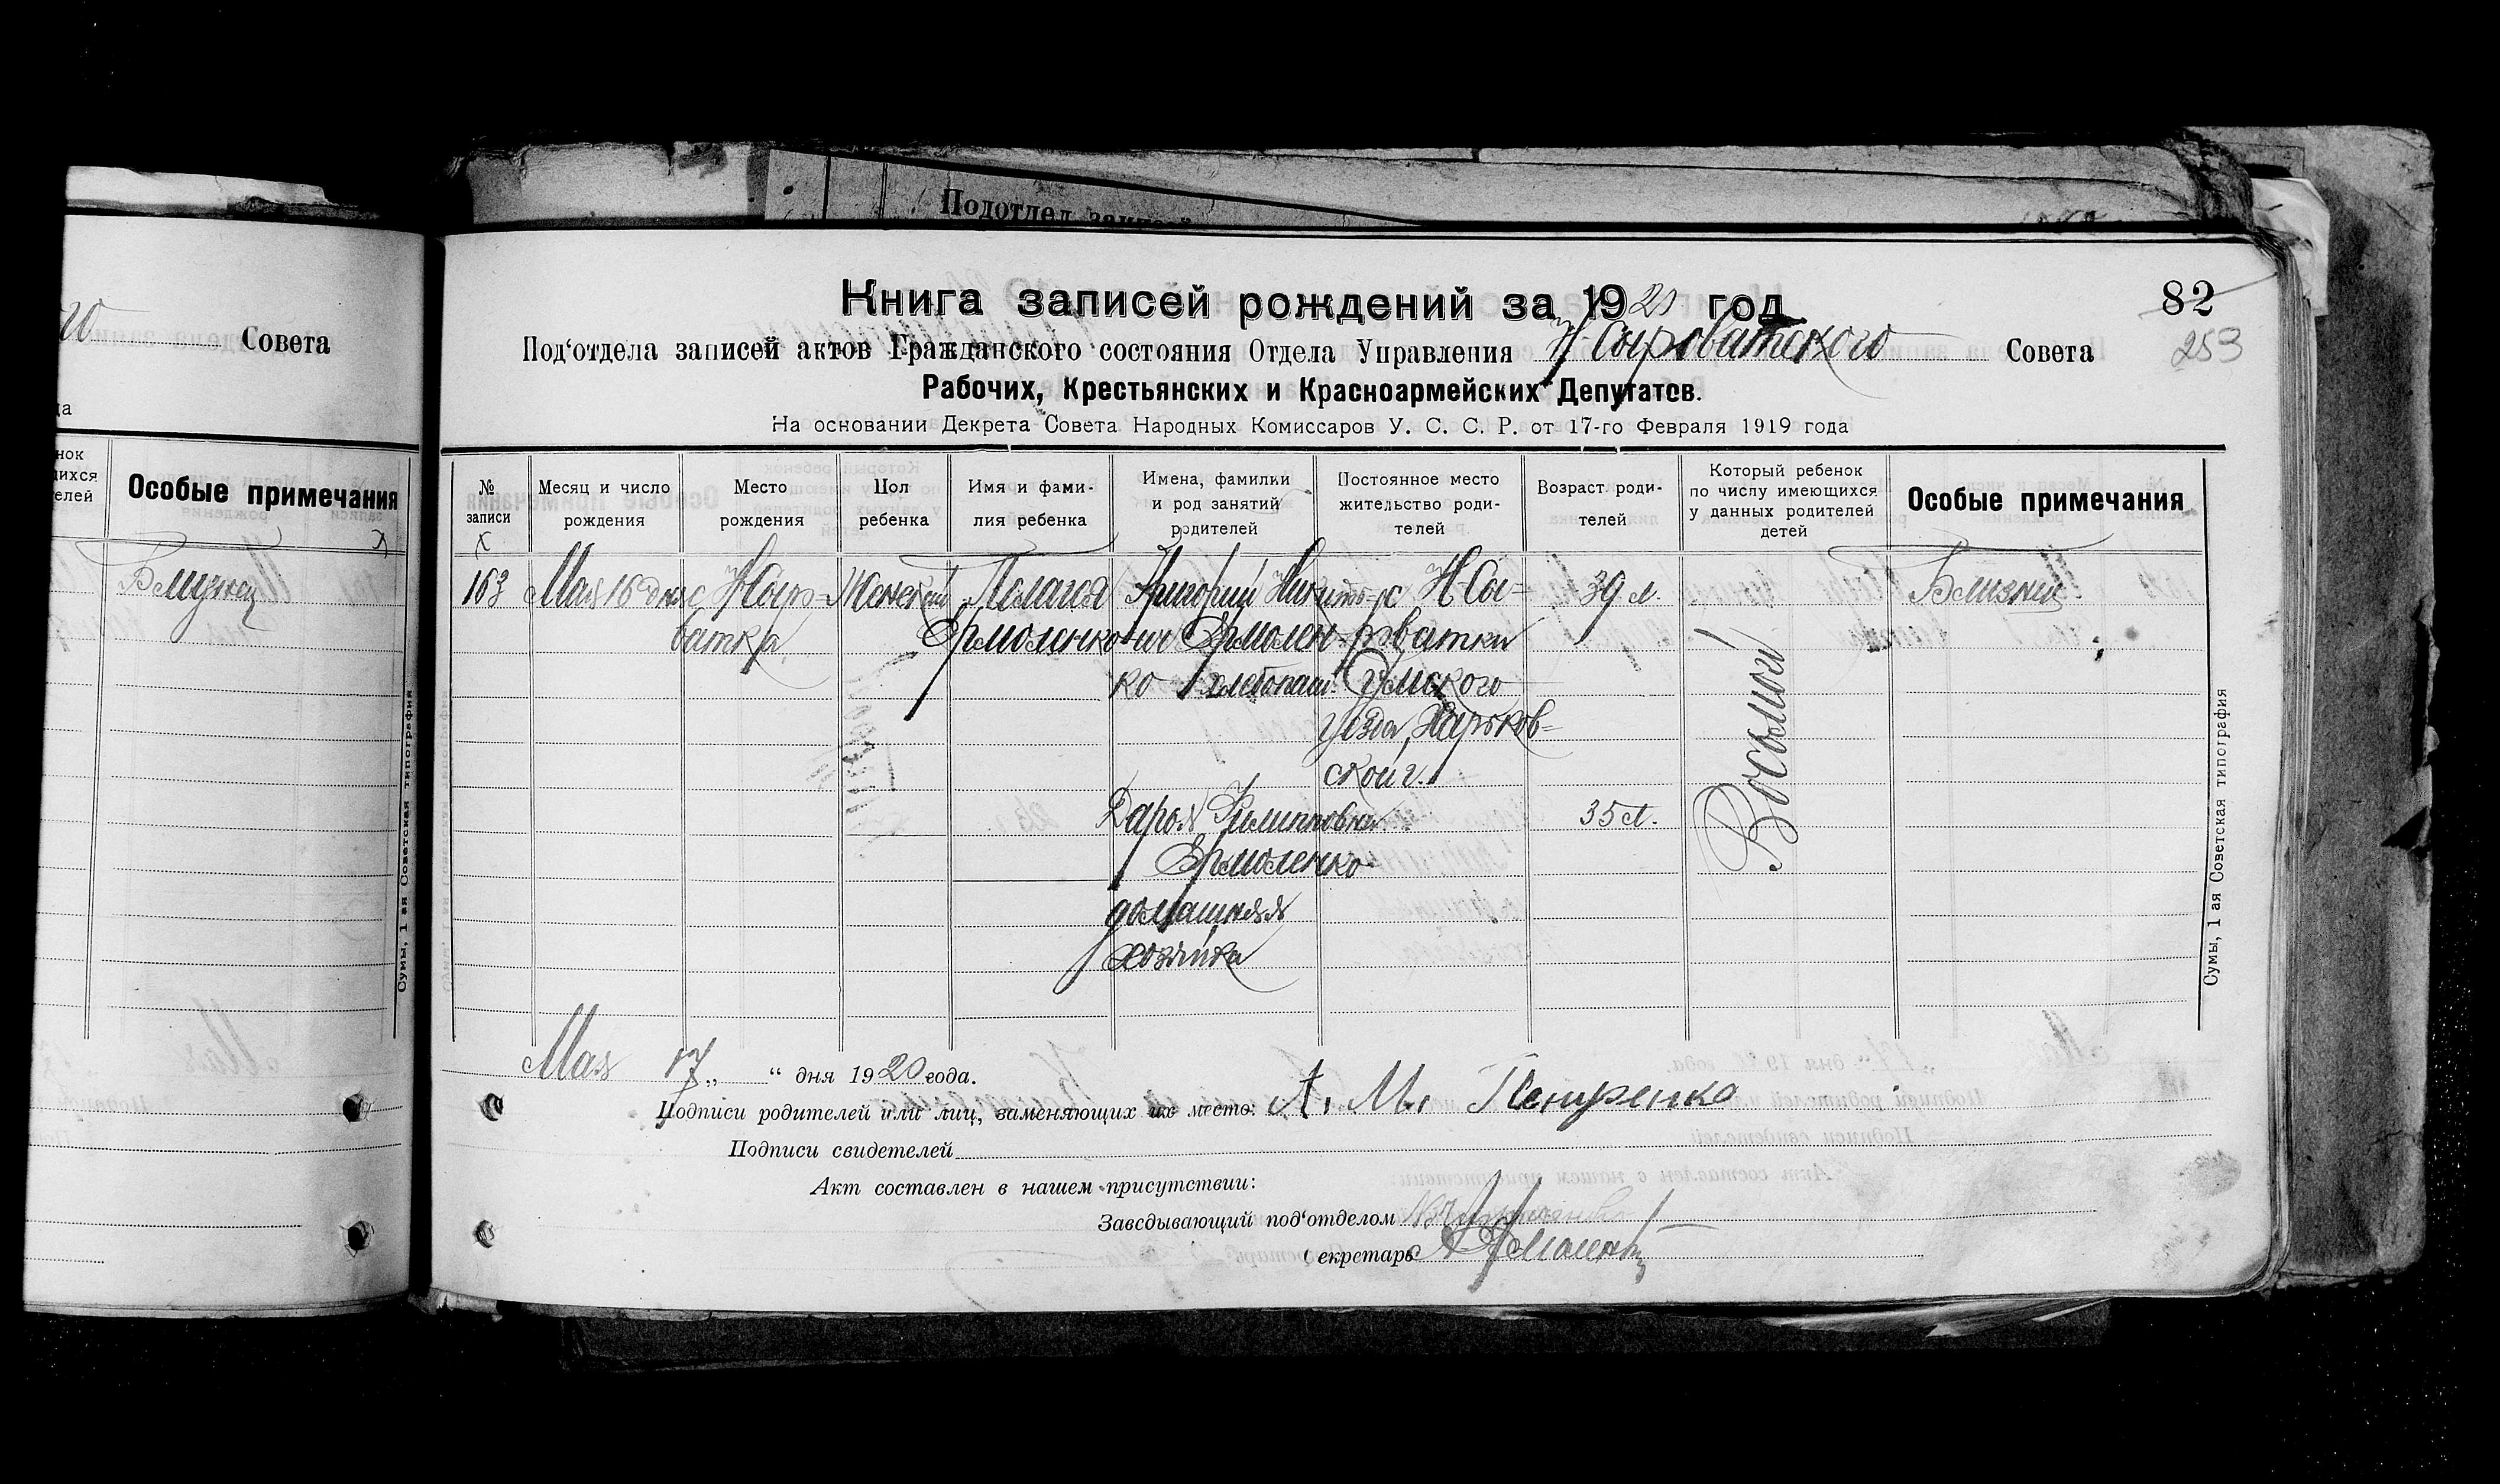 Подотдел
го Совета
да
нок
щихся
телей
Особые примечания
Близнец
Сумы, 1 ая Советская типография
82
253
Книга записей рождений за 1920 год
Под'отдела записей актов Гражданского состояния Отдела Управления Н-Сыроватского Совета
Рабочих, Крестьянских и Красноармейских Депутатов.
На основании Декрета Совета Народных Комиссаров У. С. С. Р. от 17-го Февраля 1919 года
№ записи
Месяц и число рождения
Место рождения
Пол ребенка
Имя и фамилия ребенка
Имена, фамилки и род занятий родителей
Постоянное место жительство родителей
Возраст родителей
Который ребенок по числу имеющихся у данных родителей детей
Особые примечания
163
Мая 16 дня
с Н-Сыро-
ватка
Женский
Пелагея
Ермоленко
Григорий Никит-
ович Ермолен-
ко хлебопаш.
с Н-Сы-
роватки
Сумского
уезда, Харьков-
ской г.
39 л.
Восьмой
Близнец
Дарья Филипповна
Ермоленко
домашняя
хозяйка
35 л.
Сумы, 1 ая Советская типография
Мая 17 „ “ дня 1920 года.
Подписи родителей или лиц, заменяющих их место: А. М. Петренко
Подписи свидетелей
Акт составлен в нашем присутствии:
Заведывающий под'отделом
Секретарь